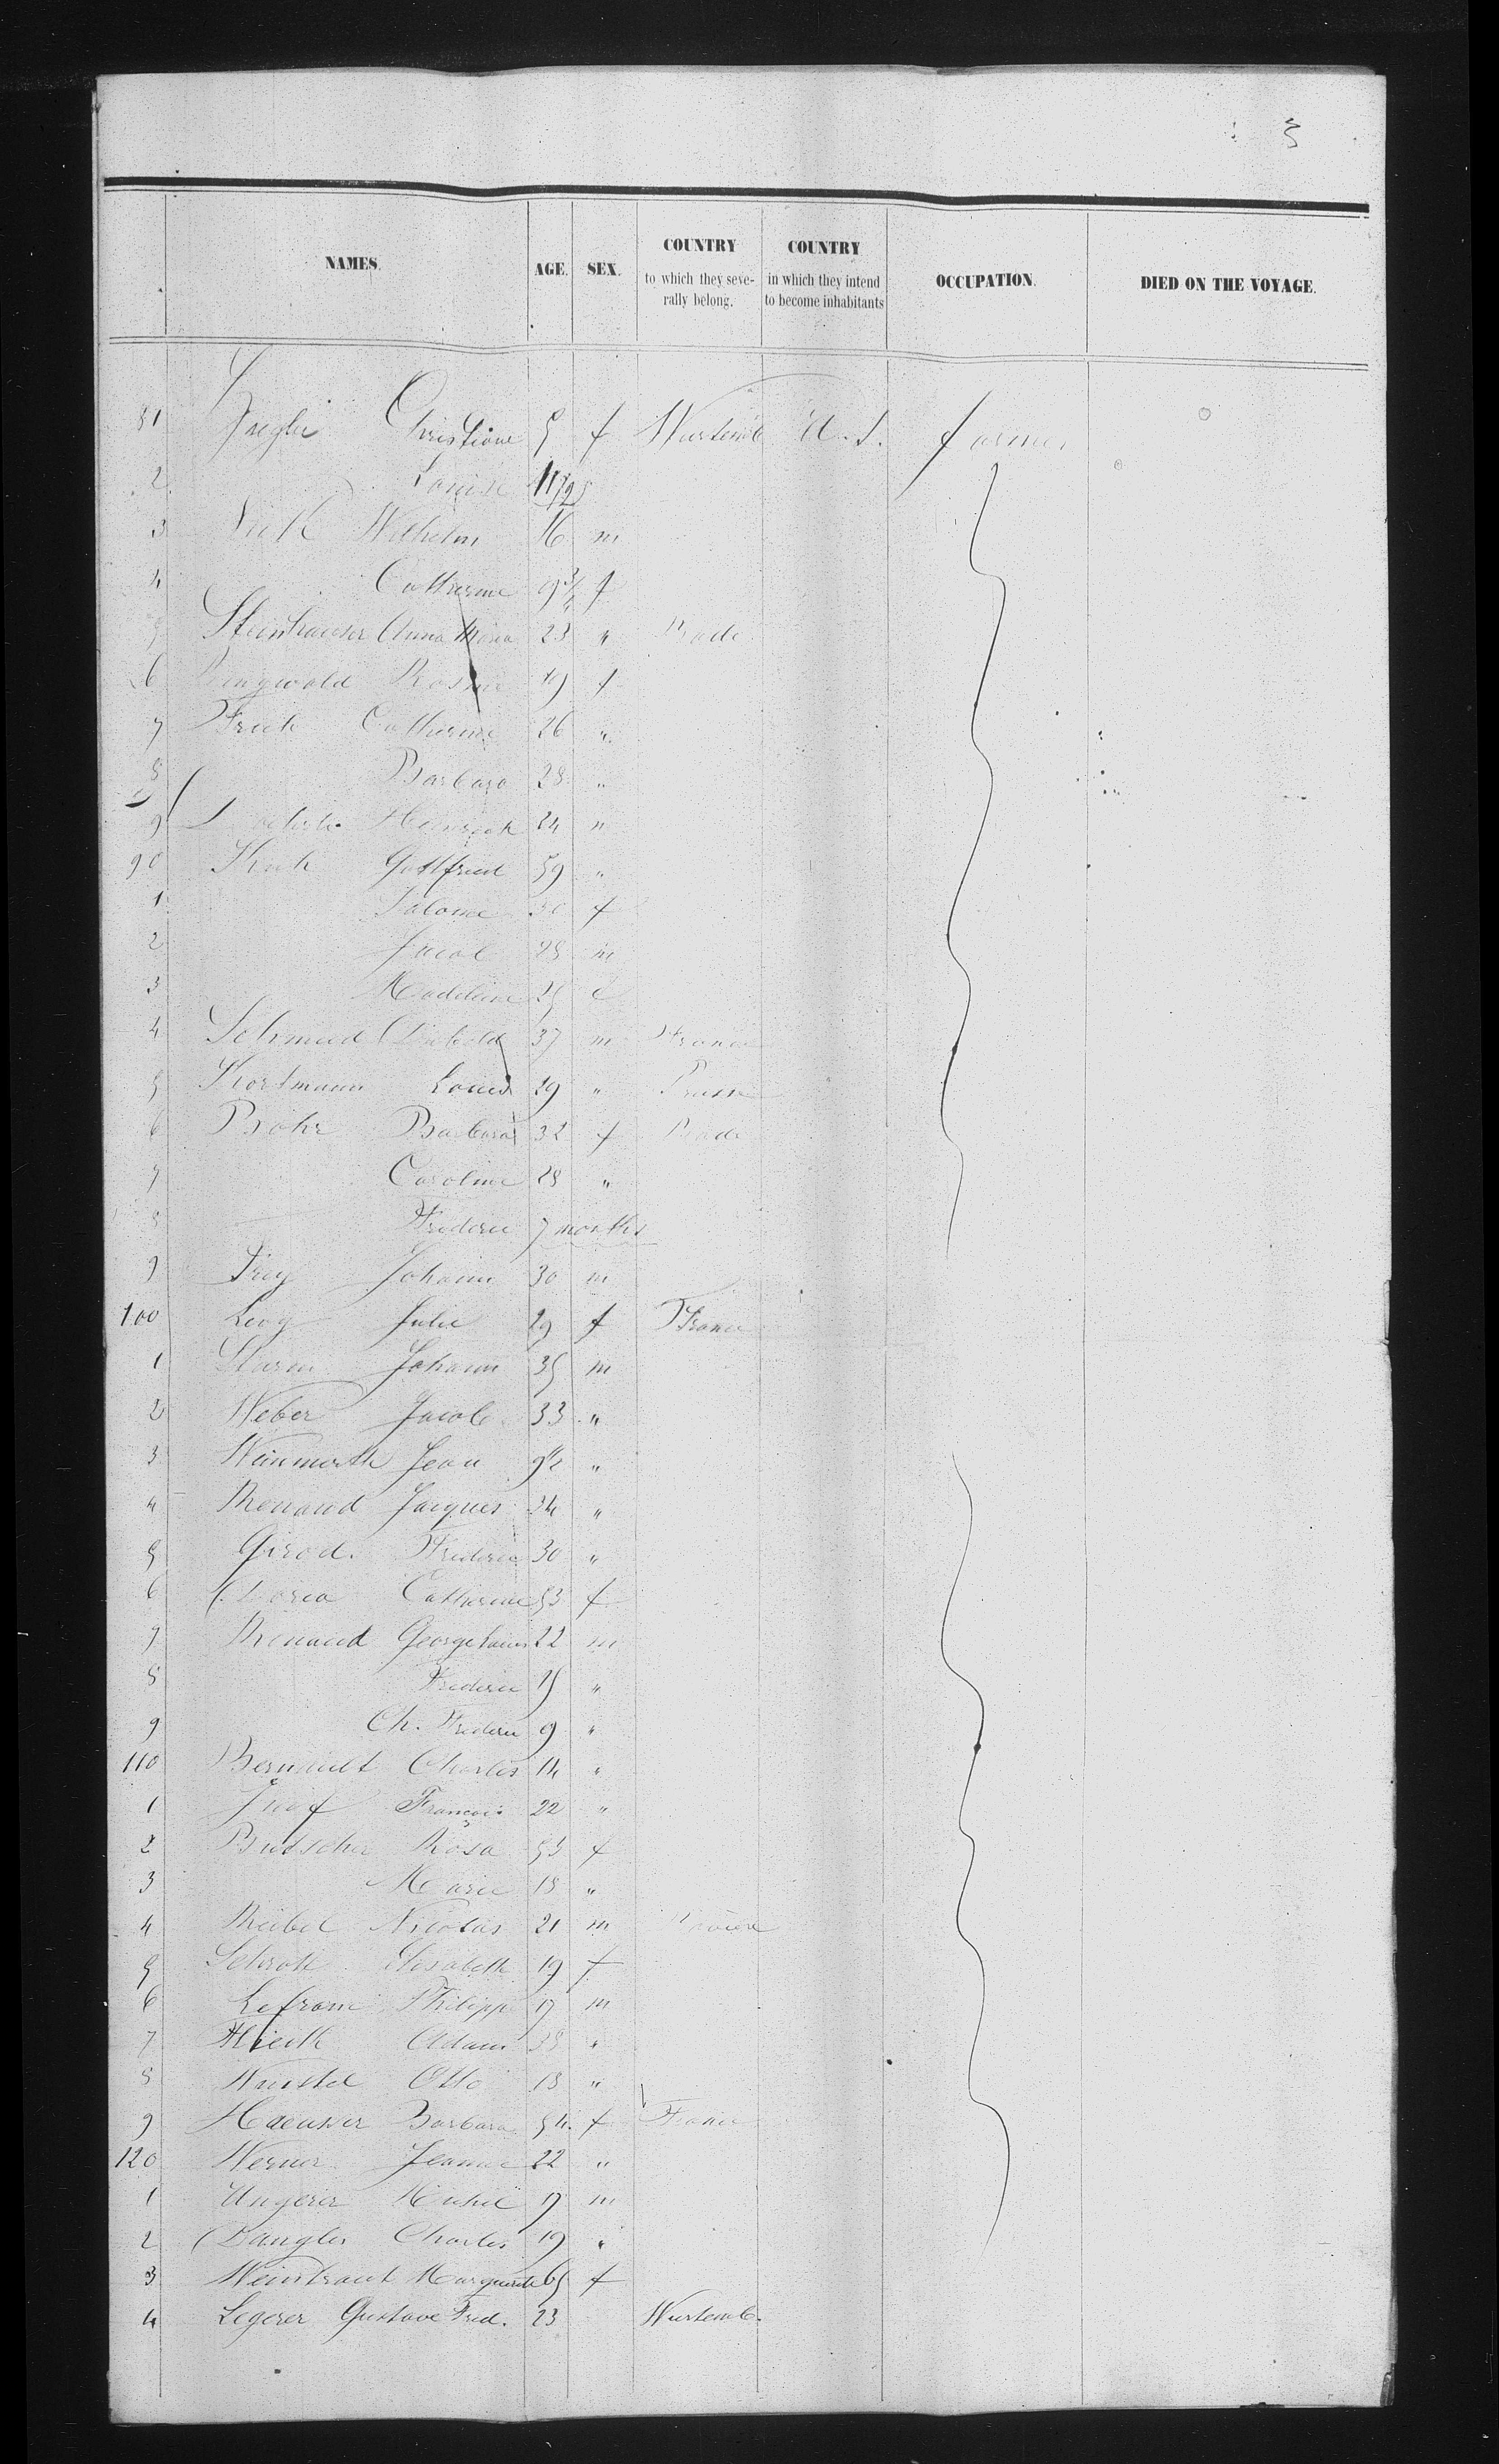 3
NAMES. AGE. SEX. COUNTRY to which they severally belong. COUNTRY in which they intend to become inhabitants OCCUPATION. DIED ON THE VOYAGE.
81 Christine 5 f Wurtemb U.S. farmer
2 Louise 11/12
3 Wilhelm 16 m
4 Catherine 9 3/4 f
5 Steinhauser Anna Maria 23 " Bade
6 Ringwald Rosine 19 f
7 Frick Catherine 26 "
8 Barbara 28 "
9 Heinrich 24 "
90 Gottfried 59 "
1 Salome f
2 Jacob 28 m
3 Madeleine 25 f
4 Schmied Diebold 37 m France
5 Kortmann Louis 29 " Prusse
6 Bohr Barbara 32 f Bade
7 Caroline 28 "
8 Frederic 7 months
9 Frey Johann 30 m
100 Levy Julie 29 f France
1 Sturm Johann 35 m
2 Weber Jacob 33 "
3 Jean "
4 Renaud Jacques 24 "
5 Girod. Frederic 30 "
6 Dorea Catherine 53 f
7 Renaud George Louis 22 m
8 Frederic 15 "
9 Ch. Frederic 9 "
110 Bernault Charles 14 "
1 François 22 "
2 Butscher Rosa 53 f
3 Marie 18 "
4 Reibel Nicolas 21 m Bavière
5 Schroth Elisabeth 19 f
6 Philipp 17 m
7 Adam 38 "
8 Otto 18 "
9 Haeusser Barbara 54 f France
120 Werner Jeanne 22 "
1 Ungerer Michel 19 m
2 Dangler Charles 19 "
3 Weintraut Marguerite 65 f
4 Legerer Gustave Fred. 23 Wurtemb.